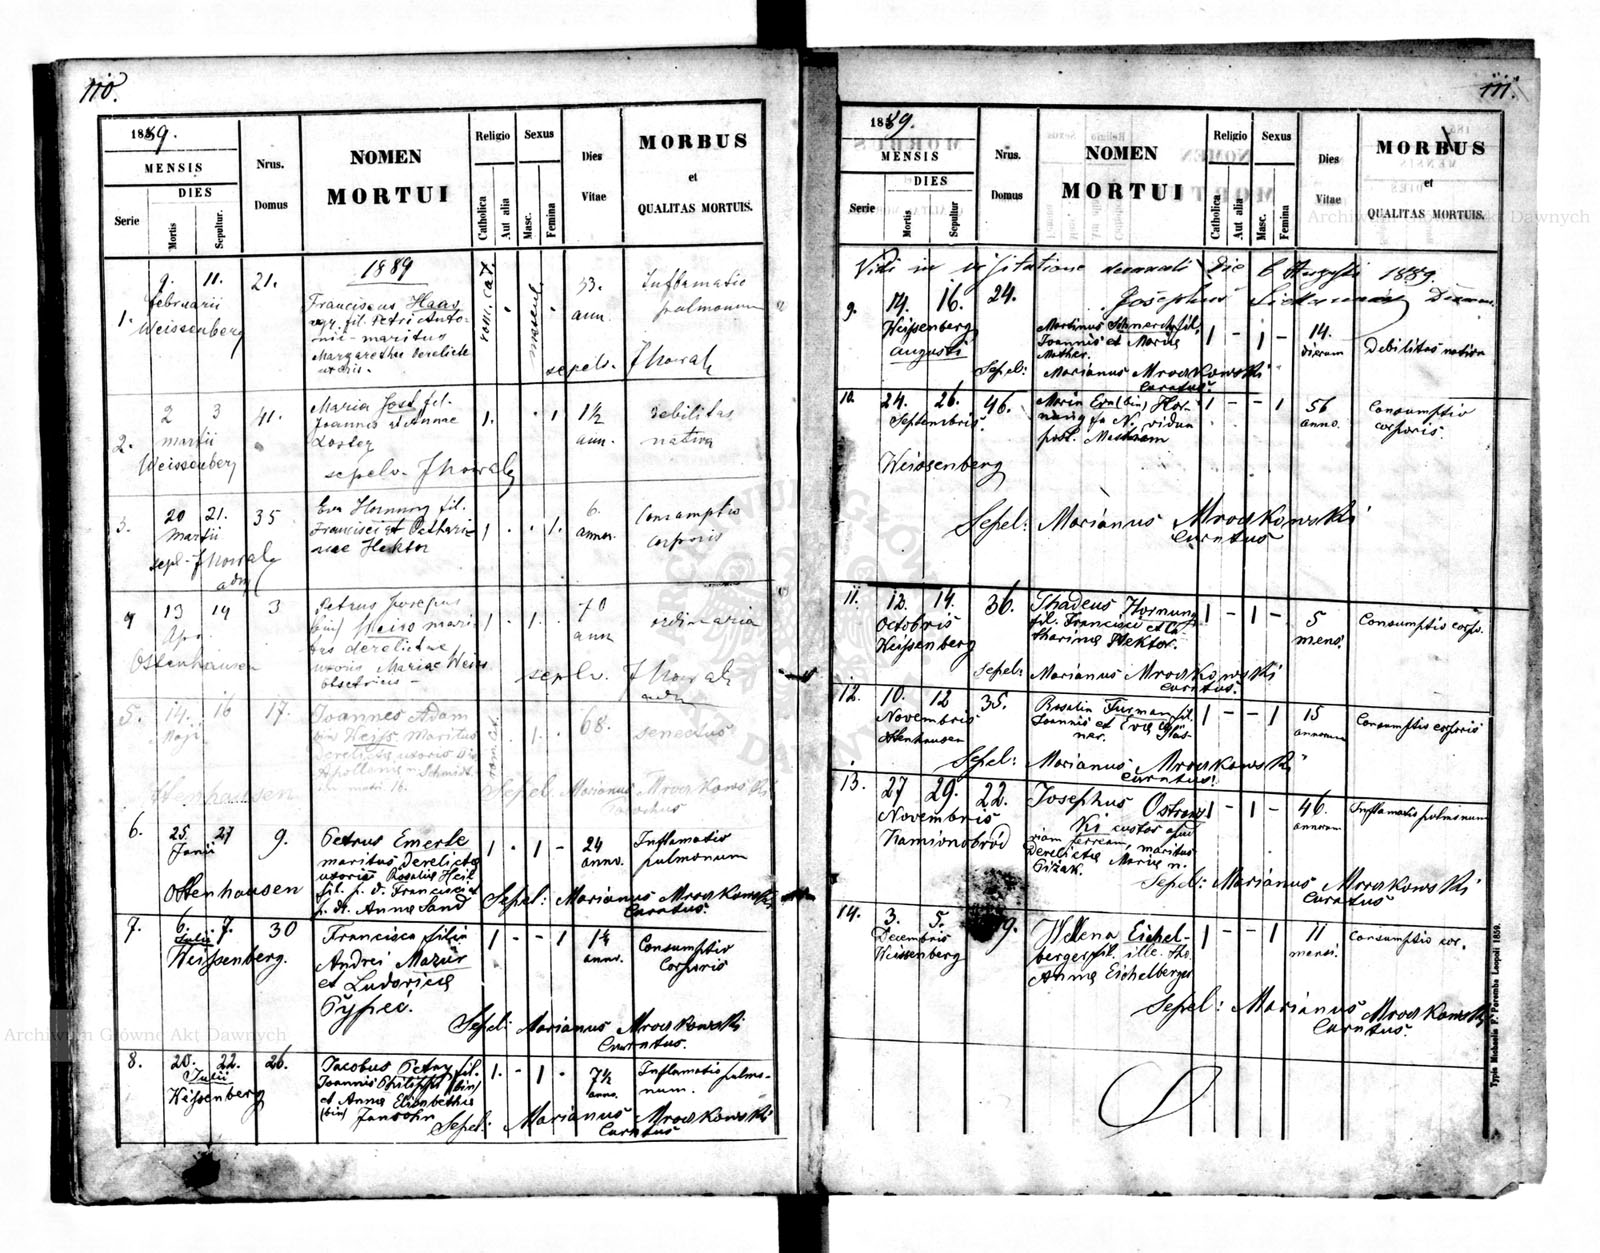 110.
1889.
MENSIS
DIES
Serie
Mortis
Sepultur.
Nrus.
Domus
NOMEN
MORTUI
Religio
Catholica
Aut alia
Sexus
Masc.
Femina
Dies
Vitae
MORBUS
et
QUALITAS MORTUIS.
1889
1.
9. 11. 21.
februarii
Weissenberg
Franciscus Haas
agr. fil. Petri Anto-
nii - maritus
Margarethae derelictae
uxoris.
rom. cat.
mascul.
53.
ann.
Inflamatio
pulmonum
sepelv.
2.
2 3 41.
martii
Weissenberg
Maria Jost fil.
Joannis et Annae
1. 1
1½
ann.
debilitas
nativa
sepelv.
3.
20 21. 35
Martii
Eva Hornung fil.
Francisci et Cathari-
nae Hektor
1 1.
6.
annor.
Consumptio
corporis
sepl.
adm
4
13 14 3
Apr
Ostenhausen
Petrus Josephus
(bin) Weiss mari-
tus derelictae
uxoris Mariae Weiss
obsetricis -
1 1.
70
ann
ordinaria
sepelv.
adm
5.
14. 16 17.
Maji
Joannes Adam
bin Weiss maritus
derelictae uxoris
Apollonia n. Schmidt
rom. cat.
1.
68.
senectus
Ottenhausen
Sepel. Marianus Mroczkowski
6.
25. 27 9.
Junii
Ottenhausen
Petrus Emerle
maritus derelictae
uxoris Rosalia Heil
fil. p. d. Francisci et
p. d. Anna Sand
1 1 -
24
anno.
Inflamatio
pulmonum
Sepel: Marianus Mroczkowski
Curatus.
7.
6. 9. 30
Julii
Weissenberg.
Francisca filia
Andrei Mazur
et Ludovica
1 - - 1
anno.
Consumptio
Corporis
Sepel: Marianus Mroczkowski
Curatus.
8.
20. 22. 26.
Julii
Weissenberg
Jacobus Petry fil.
Joannis Philippi (bin)
et Anna Elisabetha
(bin) Jansohn
1. - 1 -
7½
anno.
Inflamatio pulmo-
num.
Sepel: Marianus Mroczkowski
Curatus
111.
1889.
MENSIS
DIES
Serie
Mortis
Sepultur
Nrus.
Domus
NOMEN
MORTUI
Religio
Catholica
Aut alia
Sexus
Masc.
Femina
Dies
Vitae
MORBUS
et
QUALITAS MORTUIS.
Vidi in visitatione decanali die 6 Augusti 1889.
Josephus
9.
14. 16. 24.
Weissenberg
augusti
fil.
Joannis et Maria
Mather.
1 - 1 -
14.
dierum
Debilitas nativa
Sepel: Marianus Mroczkowski
Curatus.
10.
24. 26. 46.
Septembris.
Weissenberg
Maria Eva (bin) Hor-
nung vidua
post.
1 - - 1
56
anno.
Consumptio
corporis.
Sepel: Marianus Mroczkowski
Curatus
11.
12. 14. 36.
Octobris
Weissenberg
Thadeus Hornung
fil. Francisci et Ca-
tharina Hektor.
1 - 1 -
5
mens.
Consumptio corp.
sepel: Marianus Mroczkowski
Curatus.
12.
10. 12 35.
Novembris
Ottenhausen
Rosalia Furman fil.
Joannis et Eva
1 - - 1
15
annorum
Consumptio corporis
Sepel: Marianus Mroczkowski
Curatus.
13.
27 29. 22.
Novembris
Kamionobród
Josephus Ostrows
Ki custos apud
viam ferream, maritus
derelicta Maria n.
1 - 1 -
46.
annorum
Inflamatio pulmonum
Sepel: Marianus Mroczkowski
Curatus.
14.
3. 5. 9.
Decembris
Weissenberg
Helena Eichel-
berger fil. ille. tho.
Anna Eichelberger
1 - - 1
11
mensi.
Consumptio cor.
Sepel: Marianus Mroczkowski
Curatus.
Typis Michaelis F. Poremba Leopoli 1859.
ARCHIWUM GŁÓWNE AKT DAWNYCH
Archiwum Główne Akt Dawnych
Archiwum Główne Akt Dawnych